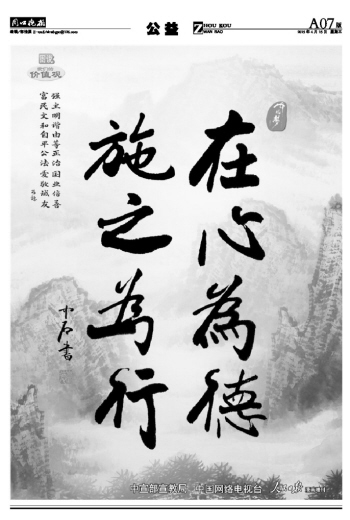 周口晚报
公益
ZHOU KOU
WAN BAO
A07版
价值观
富强 民主 文明 和谐
自由 平等 公正 法治
爱国 敬业 诚信 友善
在心為德
施之為行
中石書
中宣部宣教局 中国网络电视台 人民日报